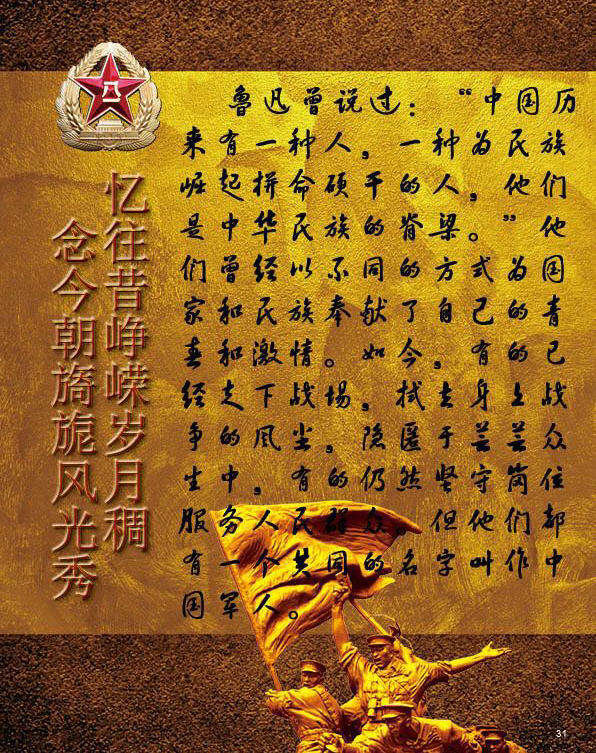 八一
忆往昔峥嵘岁月稠
念今朝旖旎风光秀
鲁迅曾说过：“中国历
来有一种人，一种为民族
崛起拼命硕干的人，他们
是中华民族的脊梁。”他
们曾经以不同的方式为国
家和民族奉献了自己的青
春和激情。如今，有的已
经走下战场，拭去身上战
争的风尘，隐匿于芸芸众
生中，有的仍然坚守岗位
服务人民群众。但他们都
有一个共同的名字叫作中
国军人。
31